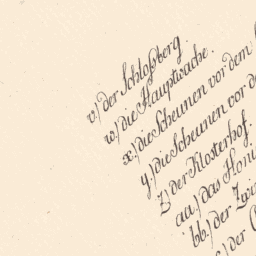 v.) der Schloßberg.
w.) die Hauptwache.
x.) die Scheunen vor dem
y.) die Scheunen vor
z.) der Klosterhof.
aa.) das
bb.) der
c.) der